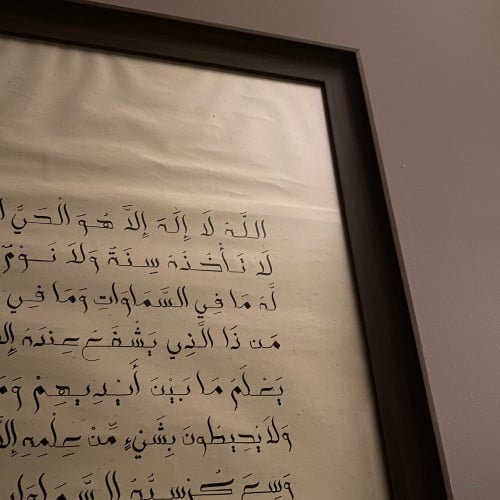 اللَّهُ لَا إِلَٰهَ إِلَّا هُوَ الْحَيُّ
لَا تَأْخُذُهُ سِنَةٌ وَلَا نَوْمٌ
لَّهُ مَا فِي السَّمَاوَاتِ وَمَا فِي
مَن ذَا الَّذِي يَشْفَعُ عِندَهُ إِلَّا
يَعْلَمُ مَا بَيْنَ أَيْدِيهِمْ وَمَا
وَلَا يُحِيطُونَ بِشَيْءٍ مِّنْ عِلْمِهِ إِلَّا
وَسِعَ كُرْسِيُّهُ السَّمَاوَاتِ